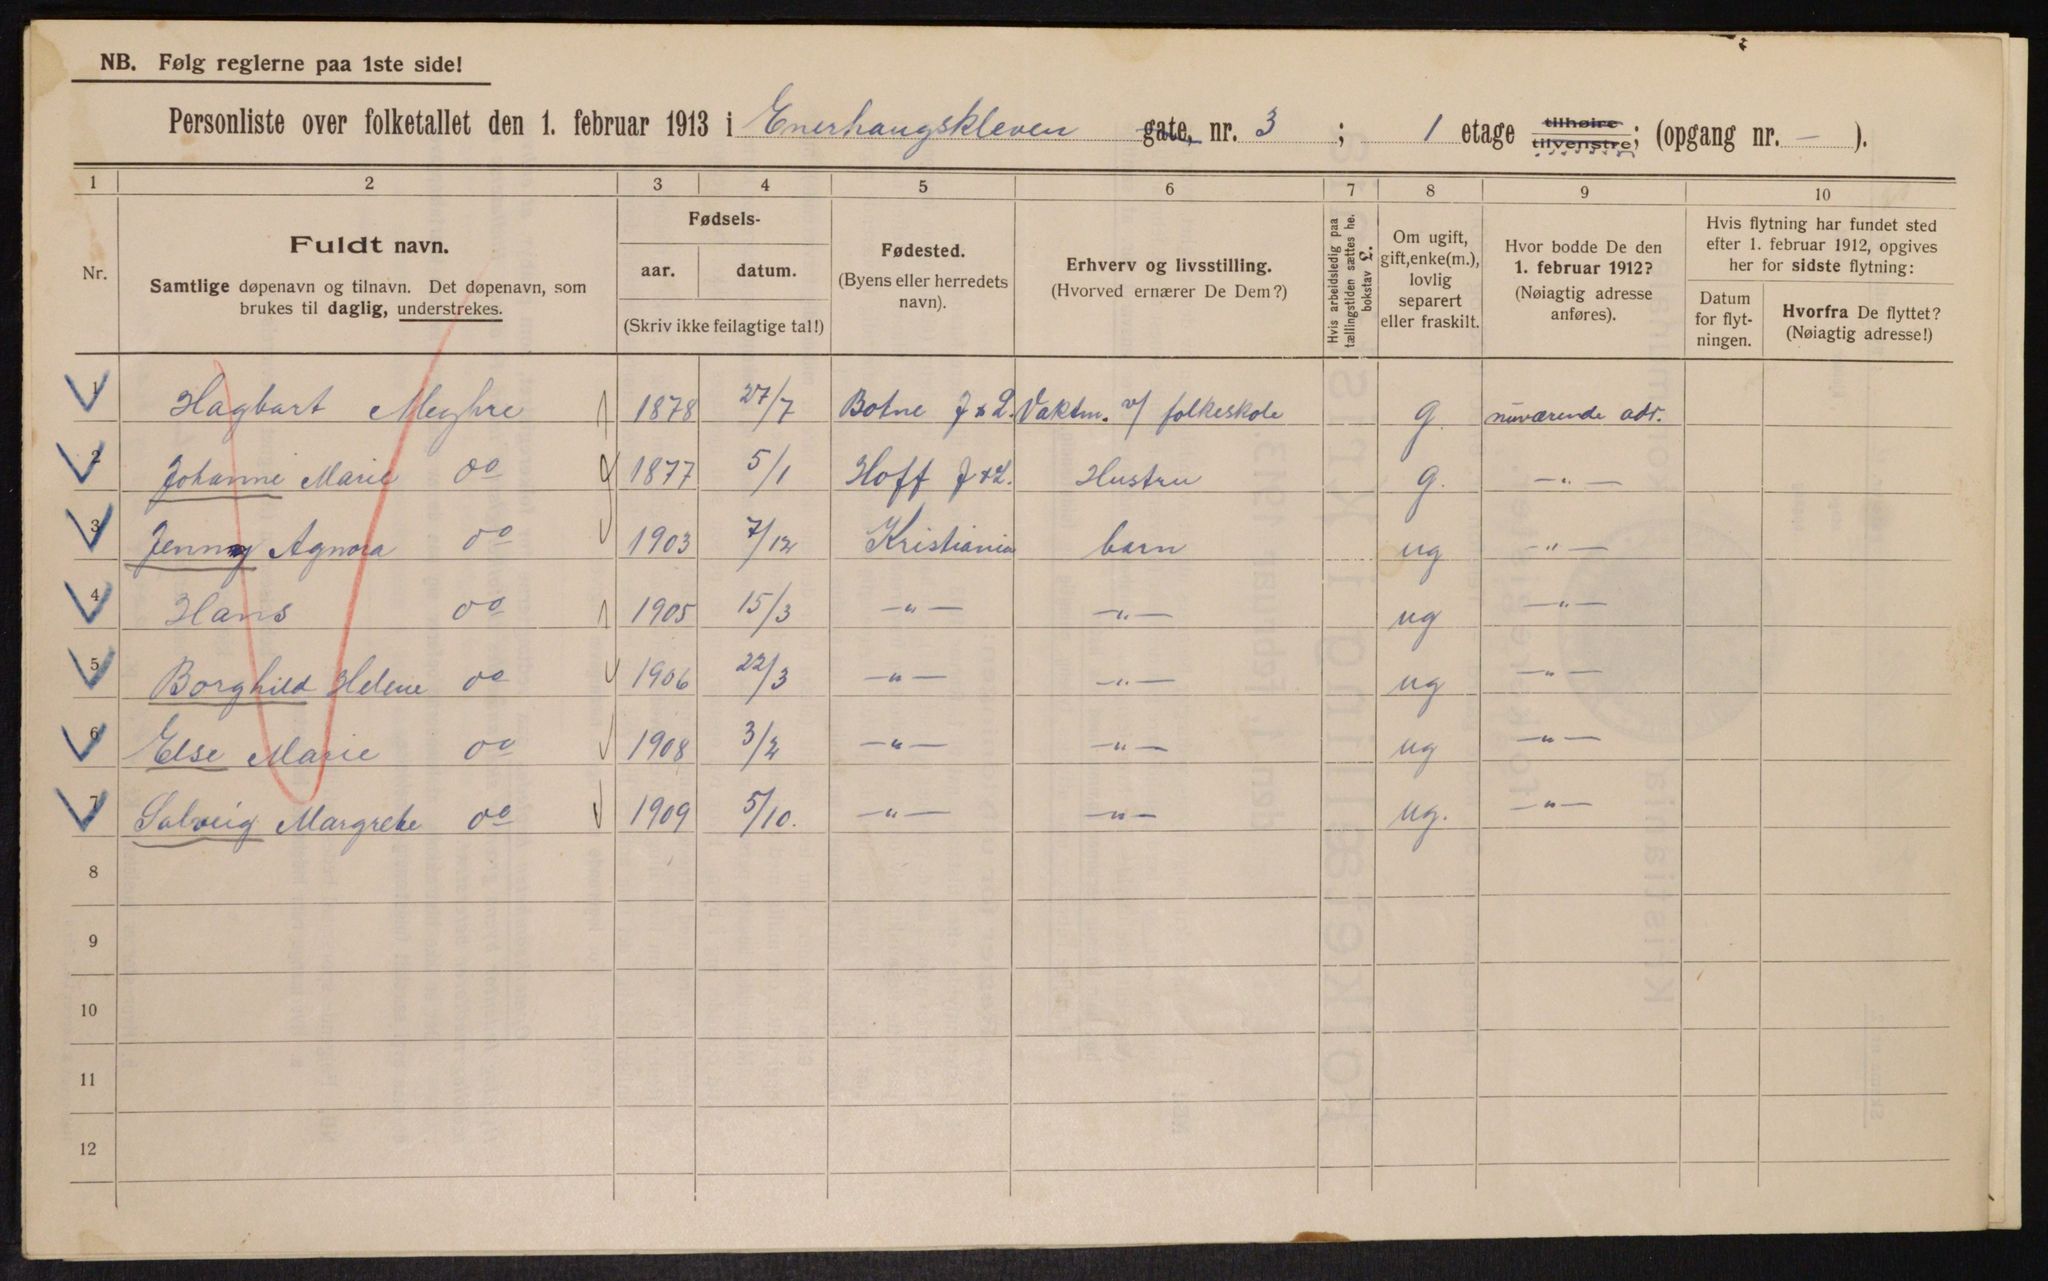 NB. Følg reglerne paa 1ste side!
Personliste over folketallet den 1. februar 1913 i Enerhaugskleven gate, nr. 3 ; 1 etage tilhøire tilvenstre; (opgang nr. — ).
1 2 3 4 5 6 7 8 9 10
Nr.
Fuldt navn.
Samtlige døpenavn og tilnavn. Det døpenavn, som
brukes til daglig, understrekes.
Fødsels-
aar. datum.
(Skriv ikke feilagtige tal!)
Fødested.
(Byens eller herredets
navn).
Erhverv og livsstilling.
(Hvorved ernærer De Dem?)
Hvis arbeidsledig paa
tællingstiden sættes he.
bokstav L.
Om ugift,
gift, enke(m.),
lovlig
separert
eller fraskilt.
Hvor bodde De den
1. februar 1912?
(Nøiagtig adresse
anføres).
Hvis flytning har fundet sted
efter 1. februar 1912, opgives
her for sidste flytning:
Datum
for flyt-
ningen.
Hvorfra De flyttet?
(Nøiagtig adresse!)
1 Hagbart 1878 27/7 Botne J & L. Vaktm. v/ folkeskole g. nuværende adr.
2 Johanne Marie do 1877 5/1 Hoff J & L. Hustru g. —"—
3 Jenny Agnora do 1903 7/12 Kristiania barn ug —"—
4 Hans do 1905 15/3 —"— —"— ug —"—
5 Borghild Helene do 1906 22/3 —"— —"— ug —"—
6 Else Marie do 1908 3/2 —"— —"— ug —"—
7 Solveig Margrete do 1909 5/10. —"— —"— ug. —"—
8
9
10
11
12